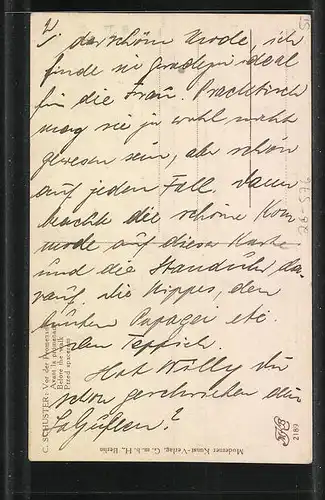 2/
der schönen Mode, ich
finde sie geradezu ideal
für die Frau. Praektisch
mag sie ja wohl nicht
gewesen sein, aber schön
auf jeden Fall. Dann
beachte die schöne Kom
mode auf dieser Karte
und die Standuhr da-
rauf, die Nippes, den
bunten Papagei etc.
den Teppich.
Hat Willy Dir
schon geschrieben
C. SCHUSTER: Vor der Promenade
Avant la promenade
Before the walk
Moderner Kunst-Verlag, G. m. b. H., Berlin
2189